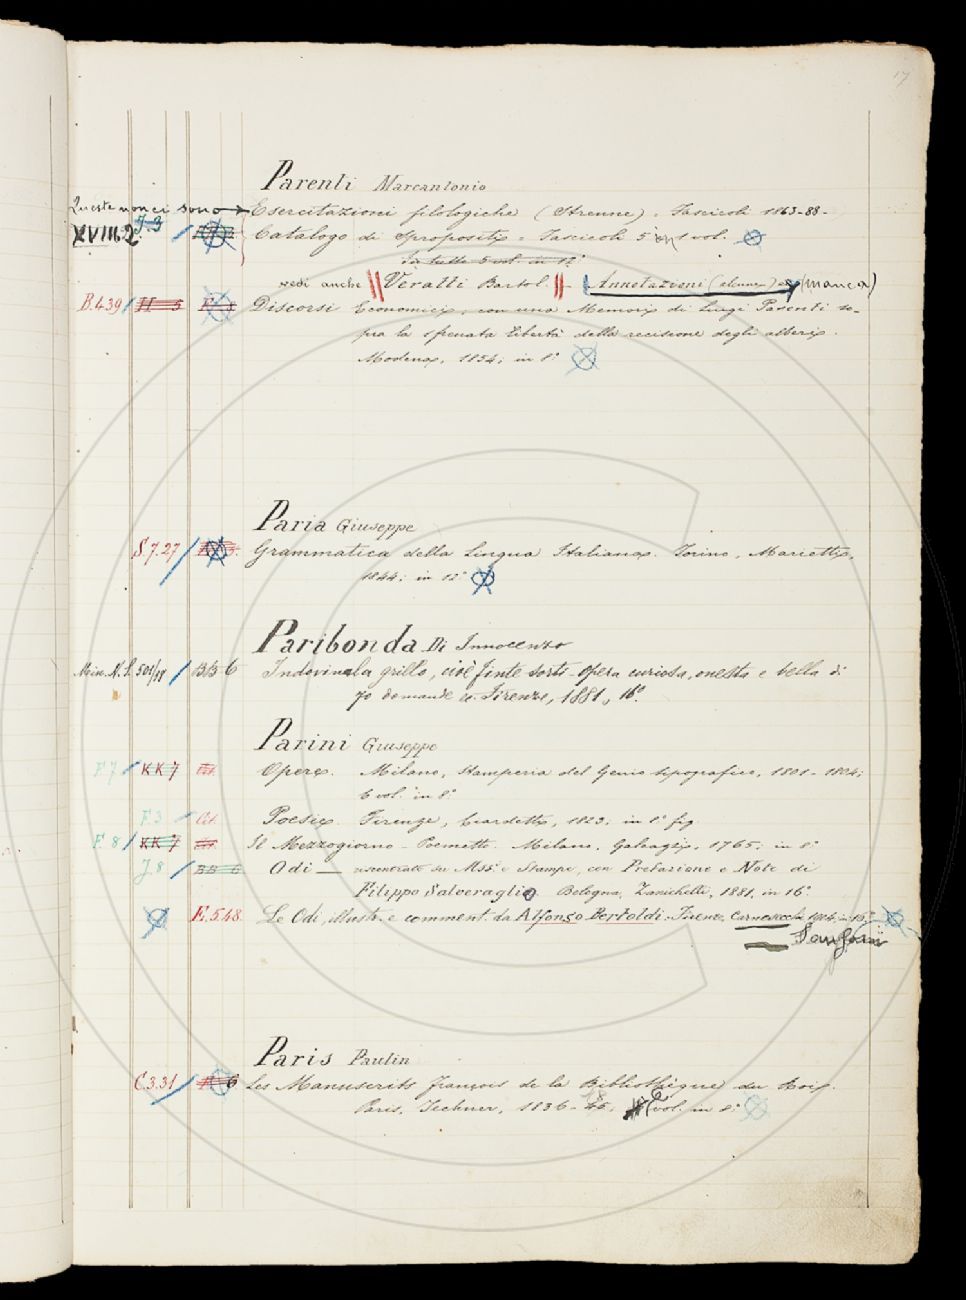 17
Parenti Marcantonio
Queste non ci sono Esercitazioni filologiche (Strenne). Fascicoli 1863-88-
XVIII.2 J-3 Catalogo di Spropositi. Fascicoli 5 1 vol.
in tutto 5 vol. in 12°
vedi anche Veratti Bartol. Annotazioni (alcune) (manca)
B.4.39 Discorsi Economici, con una Memoria di Luigi Parenti so-
pra la sfrenata libertà della recisione degli alberi.
Modena, 1854; in 8°
Paria Giuseppe
S.7.27 Grammatica della Lingua Italiana. Torino, Marietti,
1844; in 12°
Paribonda Di Innocenzo
Misc. N.S. 501/18 BB 6 Indovinala grillo, cioè finte sorti - Opera curiosa, onesta e bella di
70 domande. Firenze, 1881, 16°
Parini Giuseppe
F.7 KK 7 Opere. Milano, Stamperia del Genio tipografico, 1801-1804;
6 vol. in 8°
F.3 Poesie. Firenze, Ciardetti, 1823; in 8° fig.
F.8 KK 7 Il Mezzogiorno - Poemetto. Milano, Galeazzi, 1765; in 8°
J.8 BB 6 Odi — riscontrate su Mss. e Stampe, con Prefazione e Note di
Filippo Salveraglio. Bologna, Zanichelli, 1881, in 16°
E.5.48 Le Odi, illustr. e comment. da Alfonso Bertoldi. Firenze, Carnesecchi 1904, in 16°
Sansoni
Paris Paulin
C.3.31 6 Les Manuscrits françois de la Bibliothèque du Roi.
Paris, Techner, 1836-48, vol. in 8°